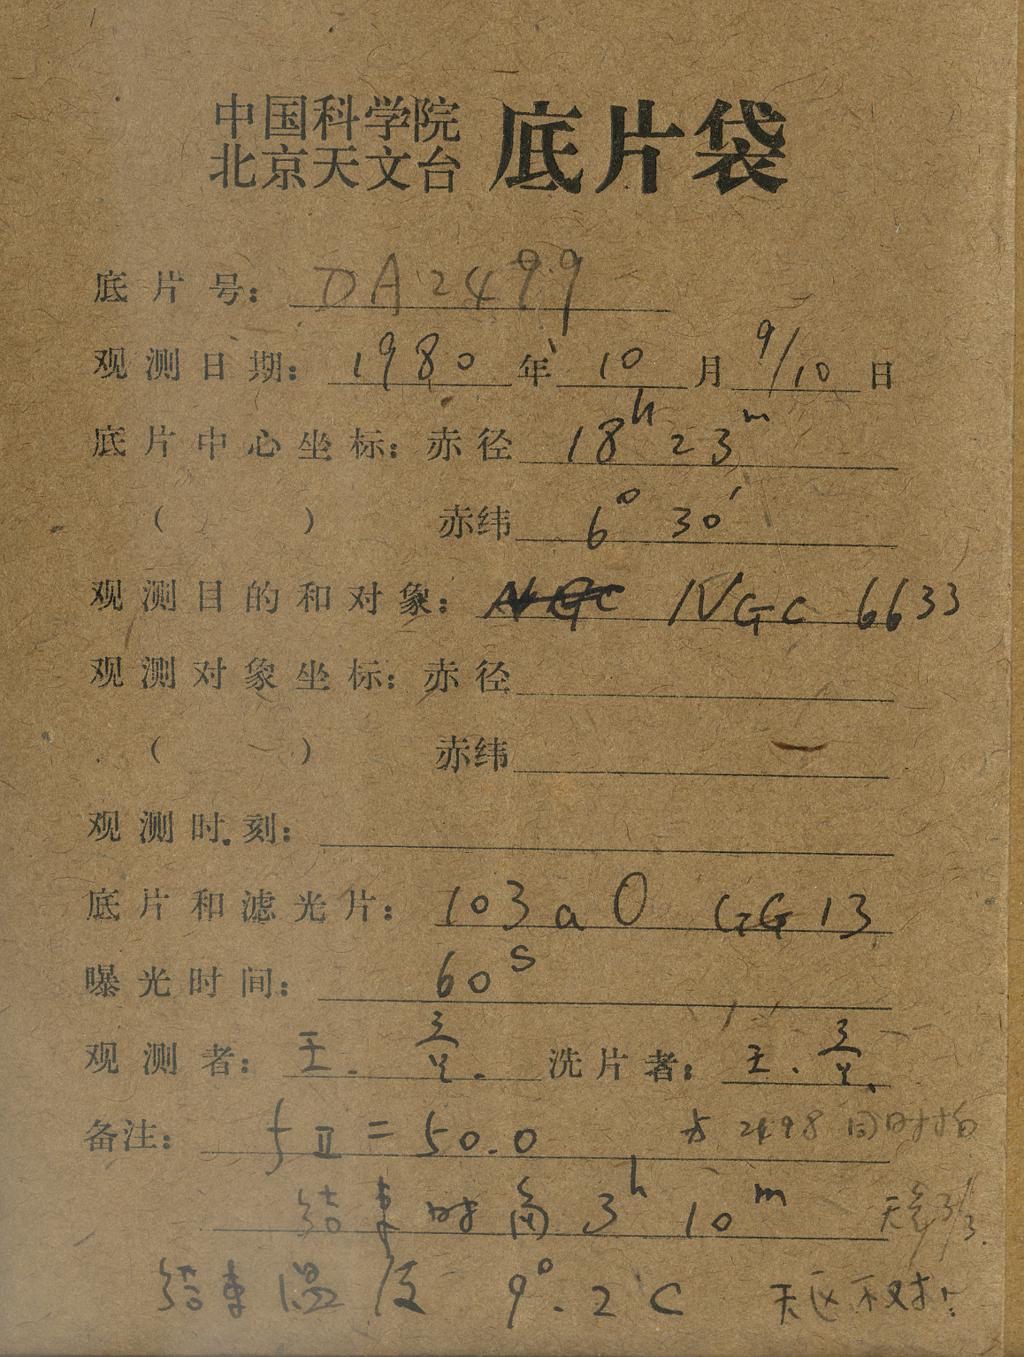 中国科学院
北京天文台 底片袋
底片号: DA2499
观测日期: 1980 年 10 月 9/10 日
底片中心坐标: 赤径 18h 23m
( ) 赤纬 6° 30′
观测目的和对象: NGC NGC 6633
观测对象坐标: 赤径
( ) 赤纬
观测时刻:
底片和滤光片: 103aO GG13
曝光时间: 60s
观测者: 王. 洗片者: 王.
备注: fⅡ=50.0 与2498同时拍
结束时角 3h 10m
结束温度 9°.2C 天区不对